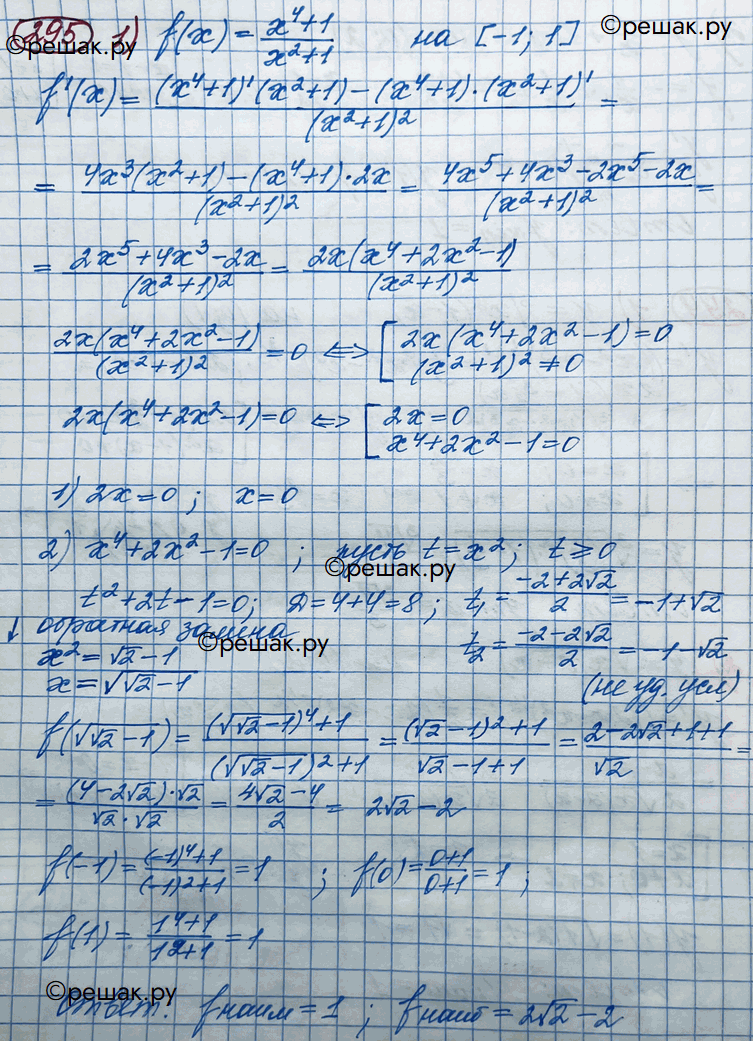 ©решак.ру
295 1) f(x) = (x⁴+1)/(x²+1) на [-1; 1]
©решак.ру
f'(x) = ((x⁴+1)'(x²+1) - (x⁴+1)·(x²+1)')/(x²+1)² =
= (4x³(x²+1) - (x⁴+1)·2x)/(x²+1)² = (4x⁵+4x³-2x⁵-2x)/(x²+1)² =
= (2x⁵+4x³-2x)/(x²+1)² = 2x(x⁴+2x²-1)/(x²+1)²
2x(x⁴+2x²-1)/(x²+1)² = 0 <=> [ 2x(x⁴+2x²-1)=0
(x²+1)² ≠ 0
2x(x⁴+2x²-1)=0 <=> [ 2x=0
x⁴+2x²-1=0
1) 2x=0 ; x=0
2) x⁴+2x²-1=0 ; пусть t=x²; t≥0
©решак.ру
t²+2t-1=0; Д=4+4=8; t₁ = (-2+2√2)/2 = -1+√2
↓ обратная замена
©решак.ру
t₂ = (-2-2√2)/2 = -1-√2
x²=√2-1
x=√(√2-1)
(не уд. усл)
f(√(√2-1)) = ((√(√2-1))⁴+1)/((√(√2-1))²+1) = ((√2-1)²+1)/(√2-1+1) = (2-2√2+1+1)/√2 =
= ((4-2√2)·√2)/(√2·√2) = (4√2-4)/2 = 2√2-2
f(-1) = ((-1)⁴+1)/((-1)²+1) = 1 ; f(0) = (0+1)/(0+1) = 1 ;
f(1) = (1⁴+1)/(1²+1) = 1
©решак.ру
Ответ. fнаим = 1 ; fнаиб = 2√2-2